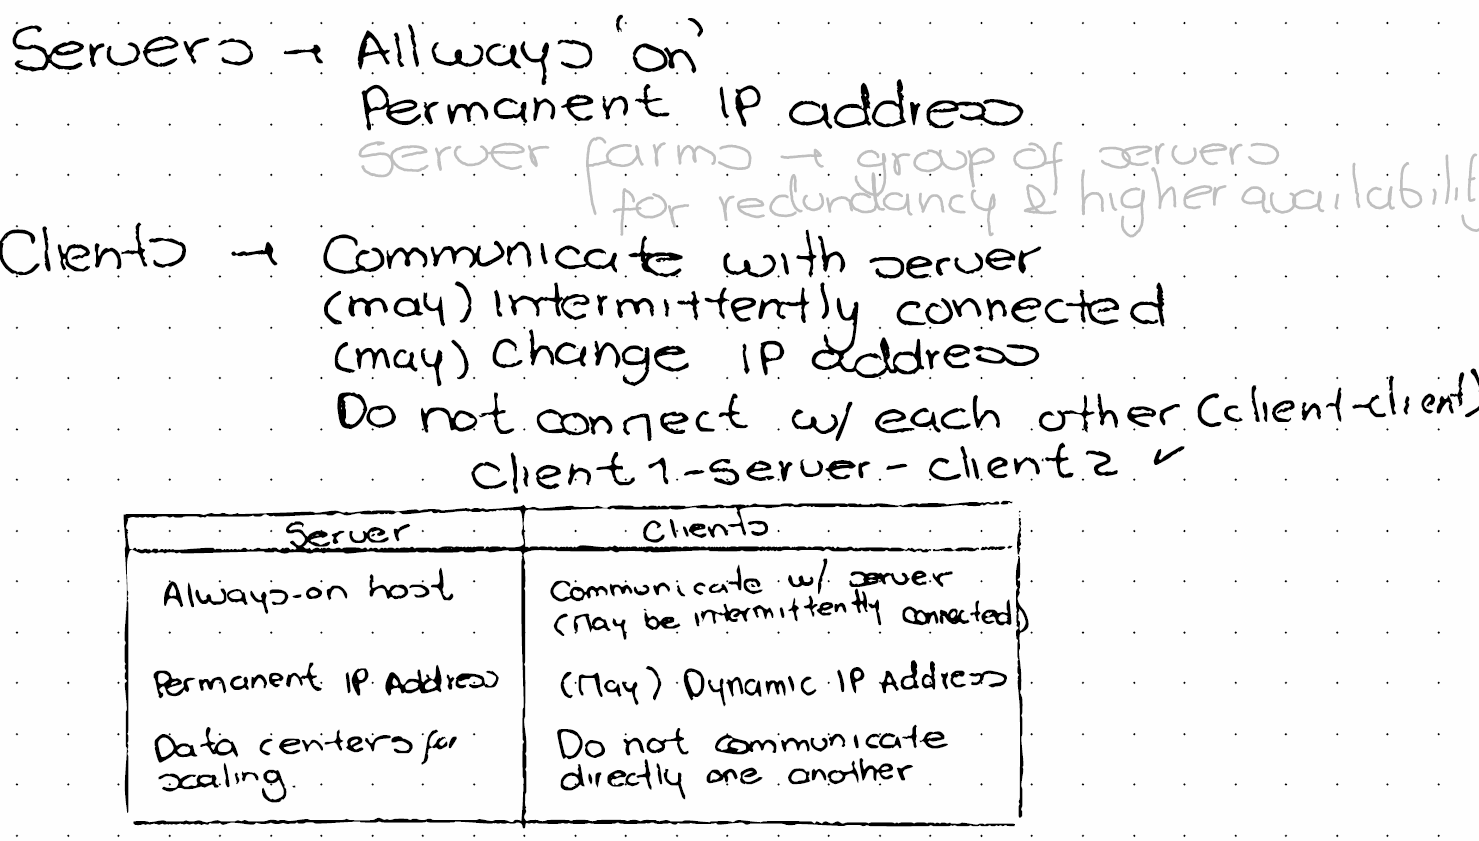 Servers → Allways 'on'
Permanent IP address
Server farms → group of servers
for redundancy & higher availability
Clients → Communicate with server
(may) Intermittently connected
(may) Change IP address
Do not connect w/ each other (client-client)
Client 1 - Server - Client 2 ✓
Server Clients
Always-on host Communicate w/ server
(May be intermittently connected)
Permanent IP Address (May) Dynamic IP Address
Data centers for Do not communicate
scaling directly one another